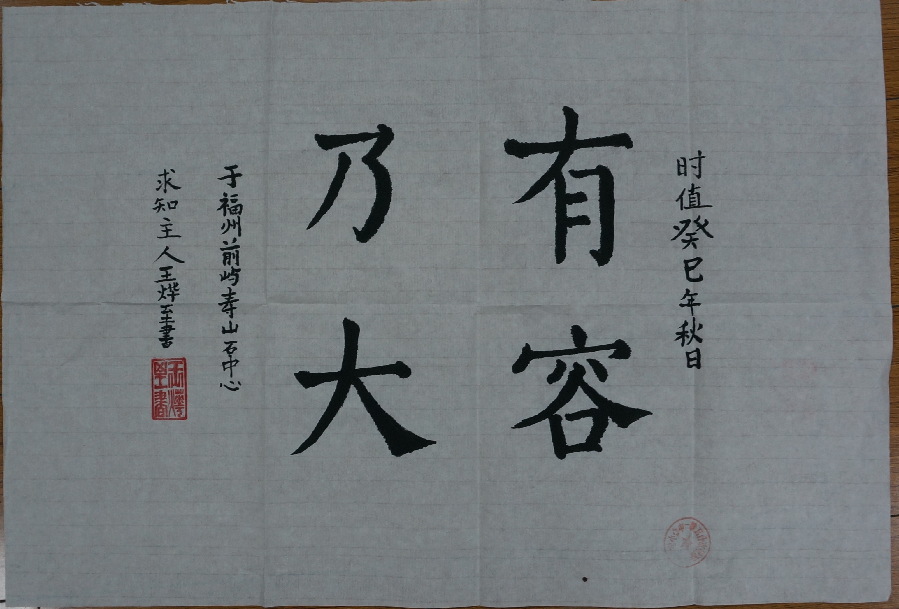 时值癸巳年秋日
有容
乃大
于福州前屿寿山石中心
求知主人王烨至書